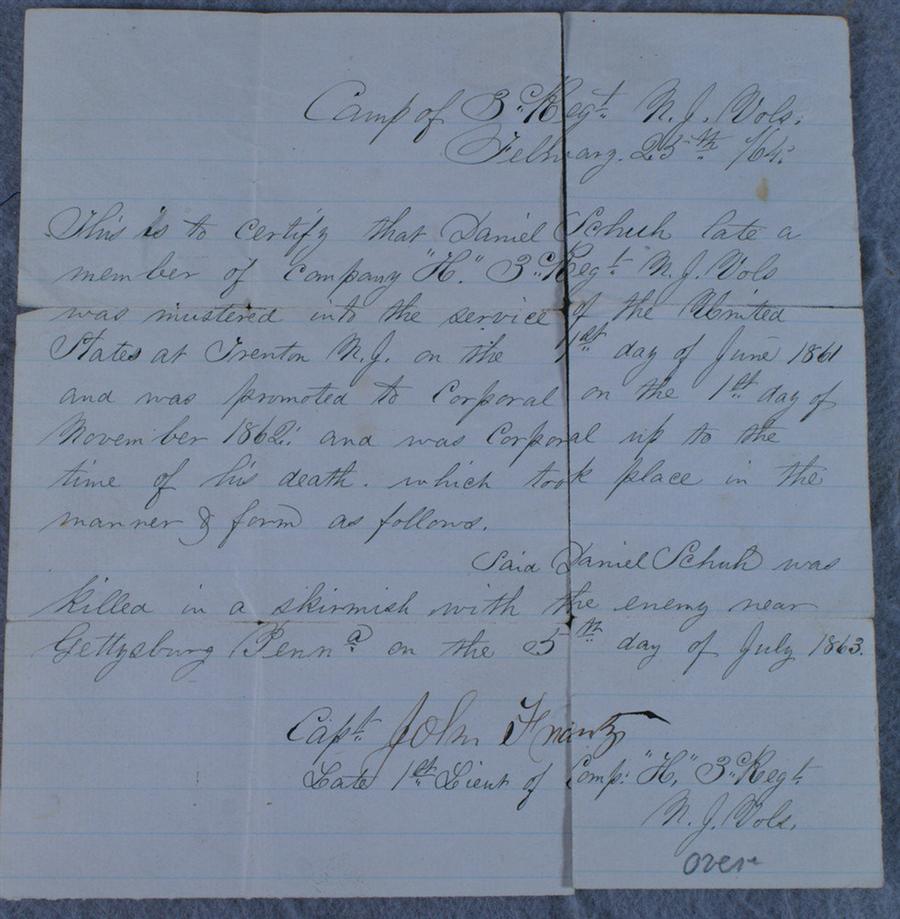 Camp of 3" Regt. N. J. Vols.
February. 25th /64.
This is to certify that Daniel Schuh late a
member of Company "H." 3" Regt. N. J. Vols
was mustered into the service of the United
States at Trenton N. J. on the 1st day of June 1861
and was promoted to Corporal on the 1st day of
November 1862. and was Corporal up to the
time of his death. which took place in the
manner & form as follows.
Said Daniel Schuh was
killed in a skirmish with the enemy near
Gettysburg Penna. on the 5th day of July 1863.
Capt. John
Late 1st Lieut of Comp. "H," 3" Regt.
N. J. Vols.
over